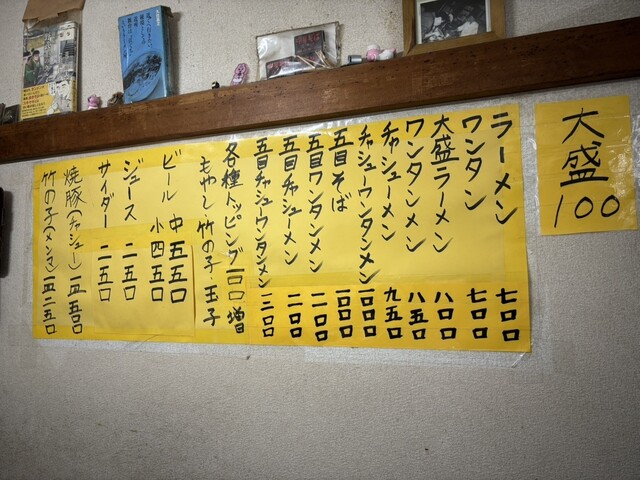 ラーメン 七〇〇
ワンタン 七〇〇
大盛ラーメン 八〇〇
ワンタンメン 八五〇
チャシューメン 九五〇
チャシューワンタンメン 一〇〇〇
五目そば 一〇〇〇
五目ワンタンメン 一一〇〇
五目チャシューメン 一二〇〇
五目チャシューワンタンメン 一三〇〇
各種トッピング一〇〇増
もやし・竹の子・玉子
ビール 中 五五〇
小 四五〇
ジュース 二五〇
サイダー 二五〇
焼豚(チャシュー)一皿 五〇〇
竹の子(メンマ)一皿 二五〇
大盛
100